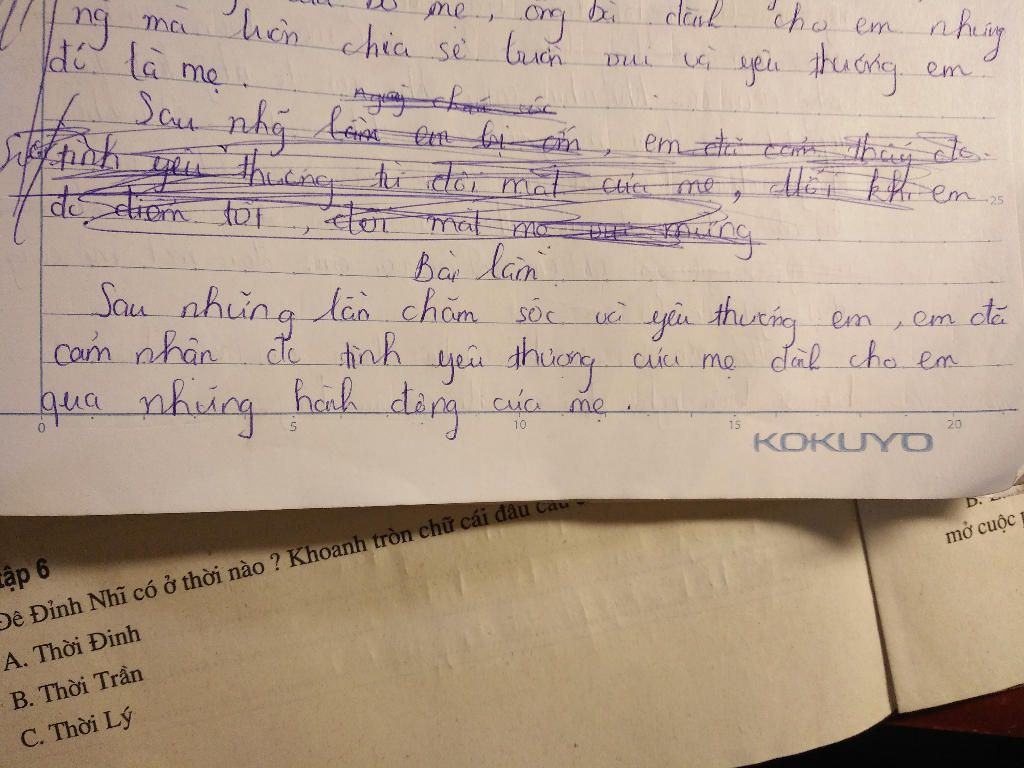 mẹ, ông bà dành cho em những
ng mà luôn chia sẻ buồn vui và yêu thương em
đó là mẹ.
Sau nhg lần em bị ốm, em đã cảm thấy đc
tình yêu thương từ đôi mắt của mẹ, Mỗi khi em
đc điểm tốt, đôi mắt mẹ vui mừng
25
Bài làm
Sau những lần chăm sóc và yêu thương em, em đã
cảm nhận đc tình yêu thương của mẹ dành cho em
qua những hành động của mẹ.
0 5 10 15 20
KOKUYO
tập 6
Đê Đỉnh Nhĩ có ở thời nào ? Khoanh tròn chữ cái đầu câu
A. Thời Đinh
B. Thời Trần
C. Thời Lý
B.
mở cuộc